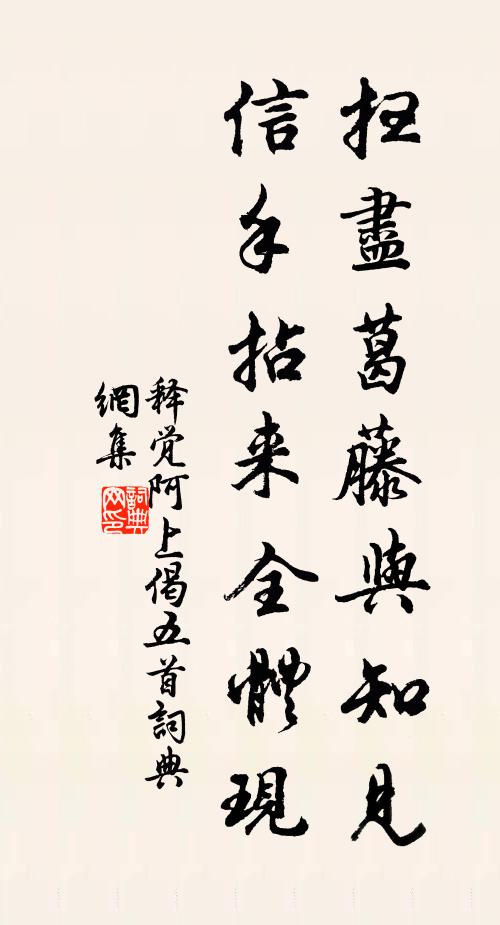 扫盡葛藤與知見
信手拈来全體現
释觉阿上偈五首詞典
網集
詞典网印